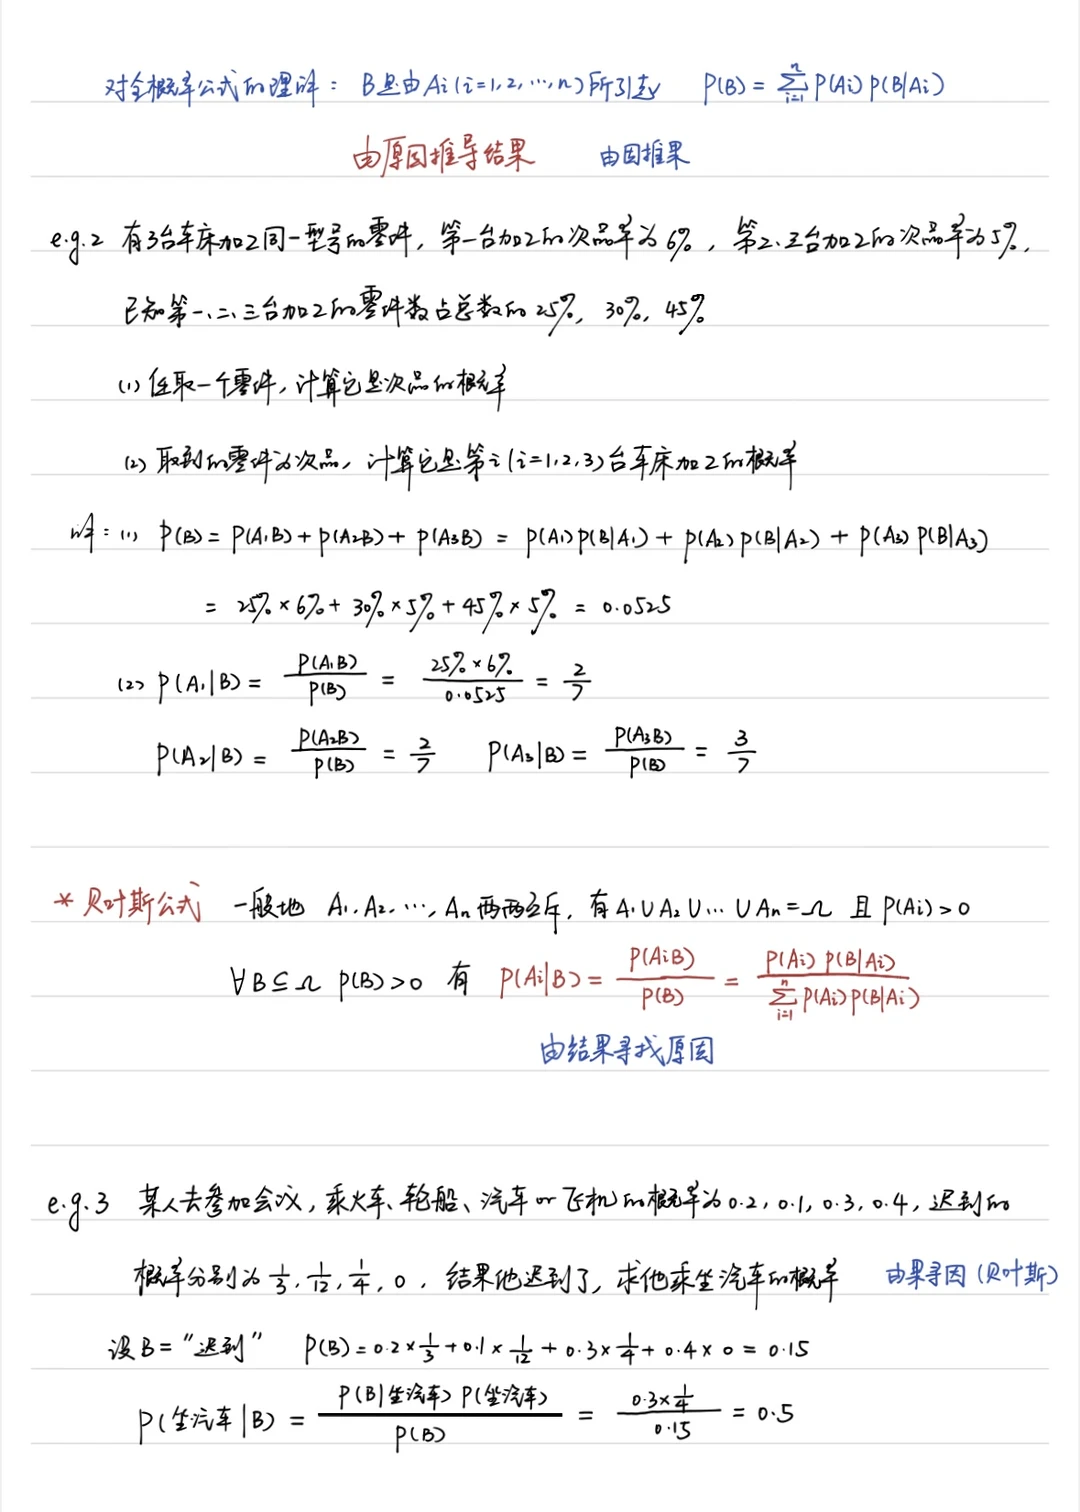 对全概率公式的理解： B是由Ai(i=1,2,…,n)所引起 P(B)=∑_{i=1}^{n}P(Ai)P(B|Ai)
由原因推导结果 由因推果
e.g.2 有3台车床加工同一型号的零件，第一台加工的次品率为6%，第2、三台加工的次品率为5%，
已知第一、二、三台加工的零件数占总数的25%，30%，45%
(1) 任取一个零件，计算它是次品的概率
(2) 取到的零件为次品，计算它是第i(i=1,2,3)台车床加工的概率
解：(1) P(B)=P(A₁B)+P(A₂B)+P(A₃B)=P(A₁)P(B|A₁)+P(A₂)P(B|A₂)+P(A₃)P(B|A₃)
=25%×6%+30%×5%+45%×5%=0.0525
(2) P(A₁|B)=P(A₁B)/P(B)=25%×6%/0.0525=2/7
P(A₂|B)=P(A₂B)/P(B)=2/7 P(A₃|B)=P(A₃B)/P(B)=3/7
* 贝叶斯公式 一般地 A₁,A₂,…,An两两互斥，有A₁∪A₂∪…∪An=Ω 且P(Ai)>0
∀B⊆Ω P(B)>0 有 P(Ai|B)=P(AiB)/P(B)=P(Ai)P(B|Ai)/∑_{i=1}^{n}P(Ai)P(B|Ai)
由结果寻找原因
e.g.3 某人去参加会议，乘火车、轮船、汽车or飞机的概率为0.2,0.1,0.3,0.4，迟到的
概率分别为1/3,1/12,1/4,0，结果他迟到了，求他乘坐汽车的概率 由果寻因(贝叶斯)
设B="迟到" P(B)=0.2×1/3+0.1×1/12+0.3×1/4+0.4×0=0.15
P(坐汽车|B)=P(B|坐汽车)P(坐汽车)/P(B)=0.3×1/4/0.15=0.5